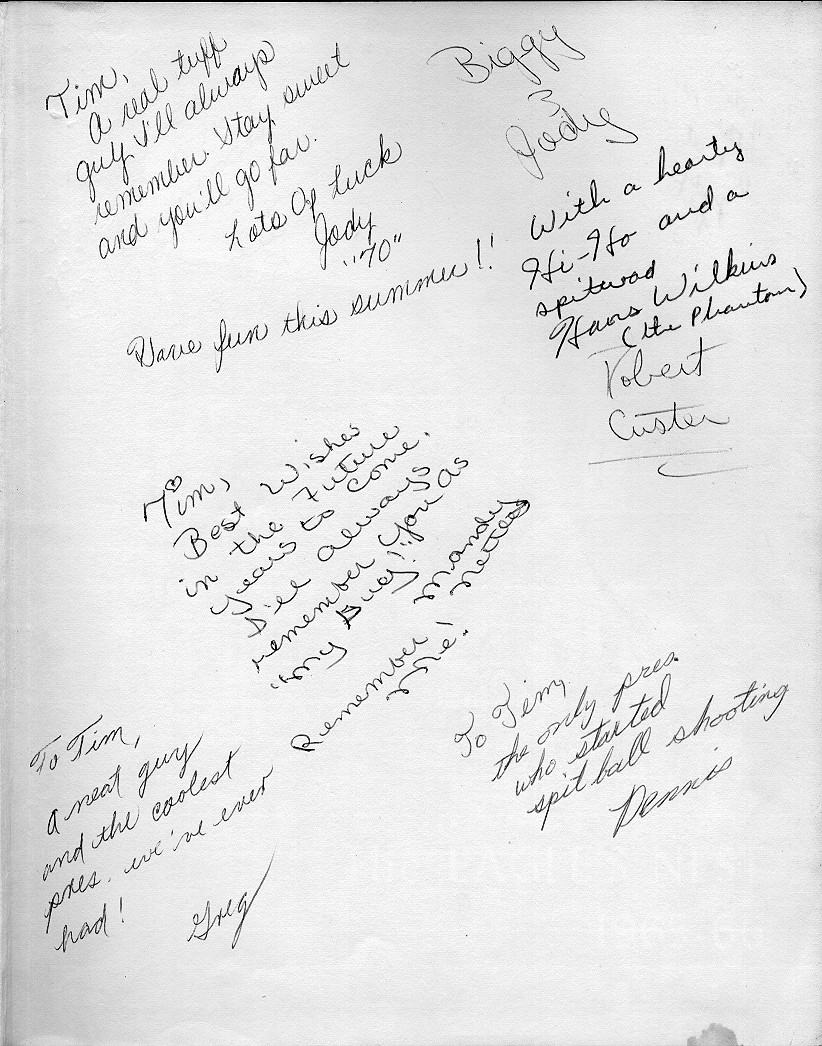 Tim,
A real tuff
guy I'll always
remember. Stay sweet
and you'll go far.
Lots Of Luck
Jody
"70"
Have fun this summer!!
Biggy
&
Jody
With a hearty
Hi-Ho and a
spitwad
Hans Wilkins
(the Phantom)
Robert
Custer
Tim,
Best Wishes
in the Future
years to come.
I'll always
remember you as
"my Budy!"
Mandy
Remember
Me!
To Tim,
the only pres.
who started
spit ball shooting
Dennis
To Tim,
a neat guy
and the coolest
pres. we've ever
had!
Greg